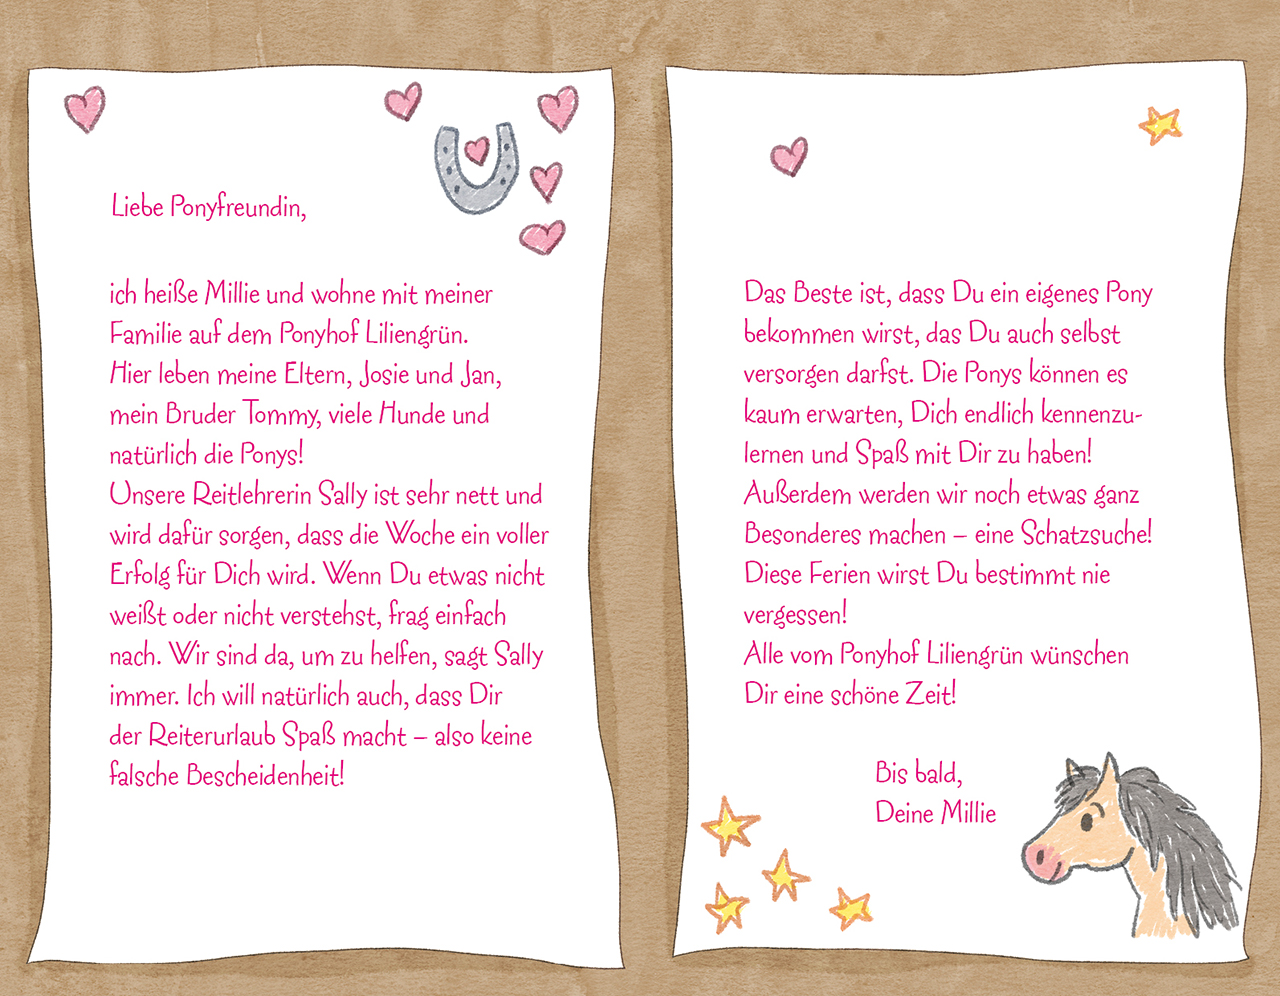 Liebe Ponyfreundin,
ich heiße Millie und wohne mit meiner
Familie auf dem Ponyhof Liliengrün.
Hier leben meine Eltern, Josie und Jan,
mein Bruder Tommy, viele Hunde und
natürlich die Ponys!
Unsere Reitlehrerin Sally ist sehr nett und
wird dafür sorgen, dass die Woche ein voller
Erfolg für Dich wird. Wenn Du etwas nicht
weißt oder nicht verstehst, frag einfach
nach. Wir sind da, um zu helfen, sagt Sally
immer. Ich will natürlich auch, dass Dir
der Reiterurlaub Spaß macht – also keine
falsche Bescheidenheit!
Das Beste ist, dass Du ein eigenes Pony
bekommen wirst, das Du auch selbst
versorgen darfst. Die Ponys können es
kaum erwarten, Dich endlich kennenzu-
lernen und Spaß mit Dir zu haben!
Außerdem werden wir noch etwas ganz
Besonderes machen – eine Schatzsuche!
Diese Ferien wirst Du bestimmt nie
vergessen!
Alle vom Ponyhof Liliengrün wünschen
Dir eine schöne Zeit!
Bis bald,
Deine Millie